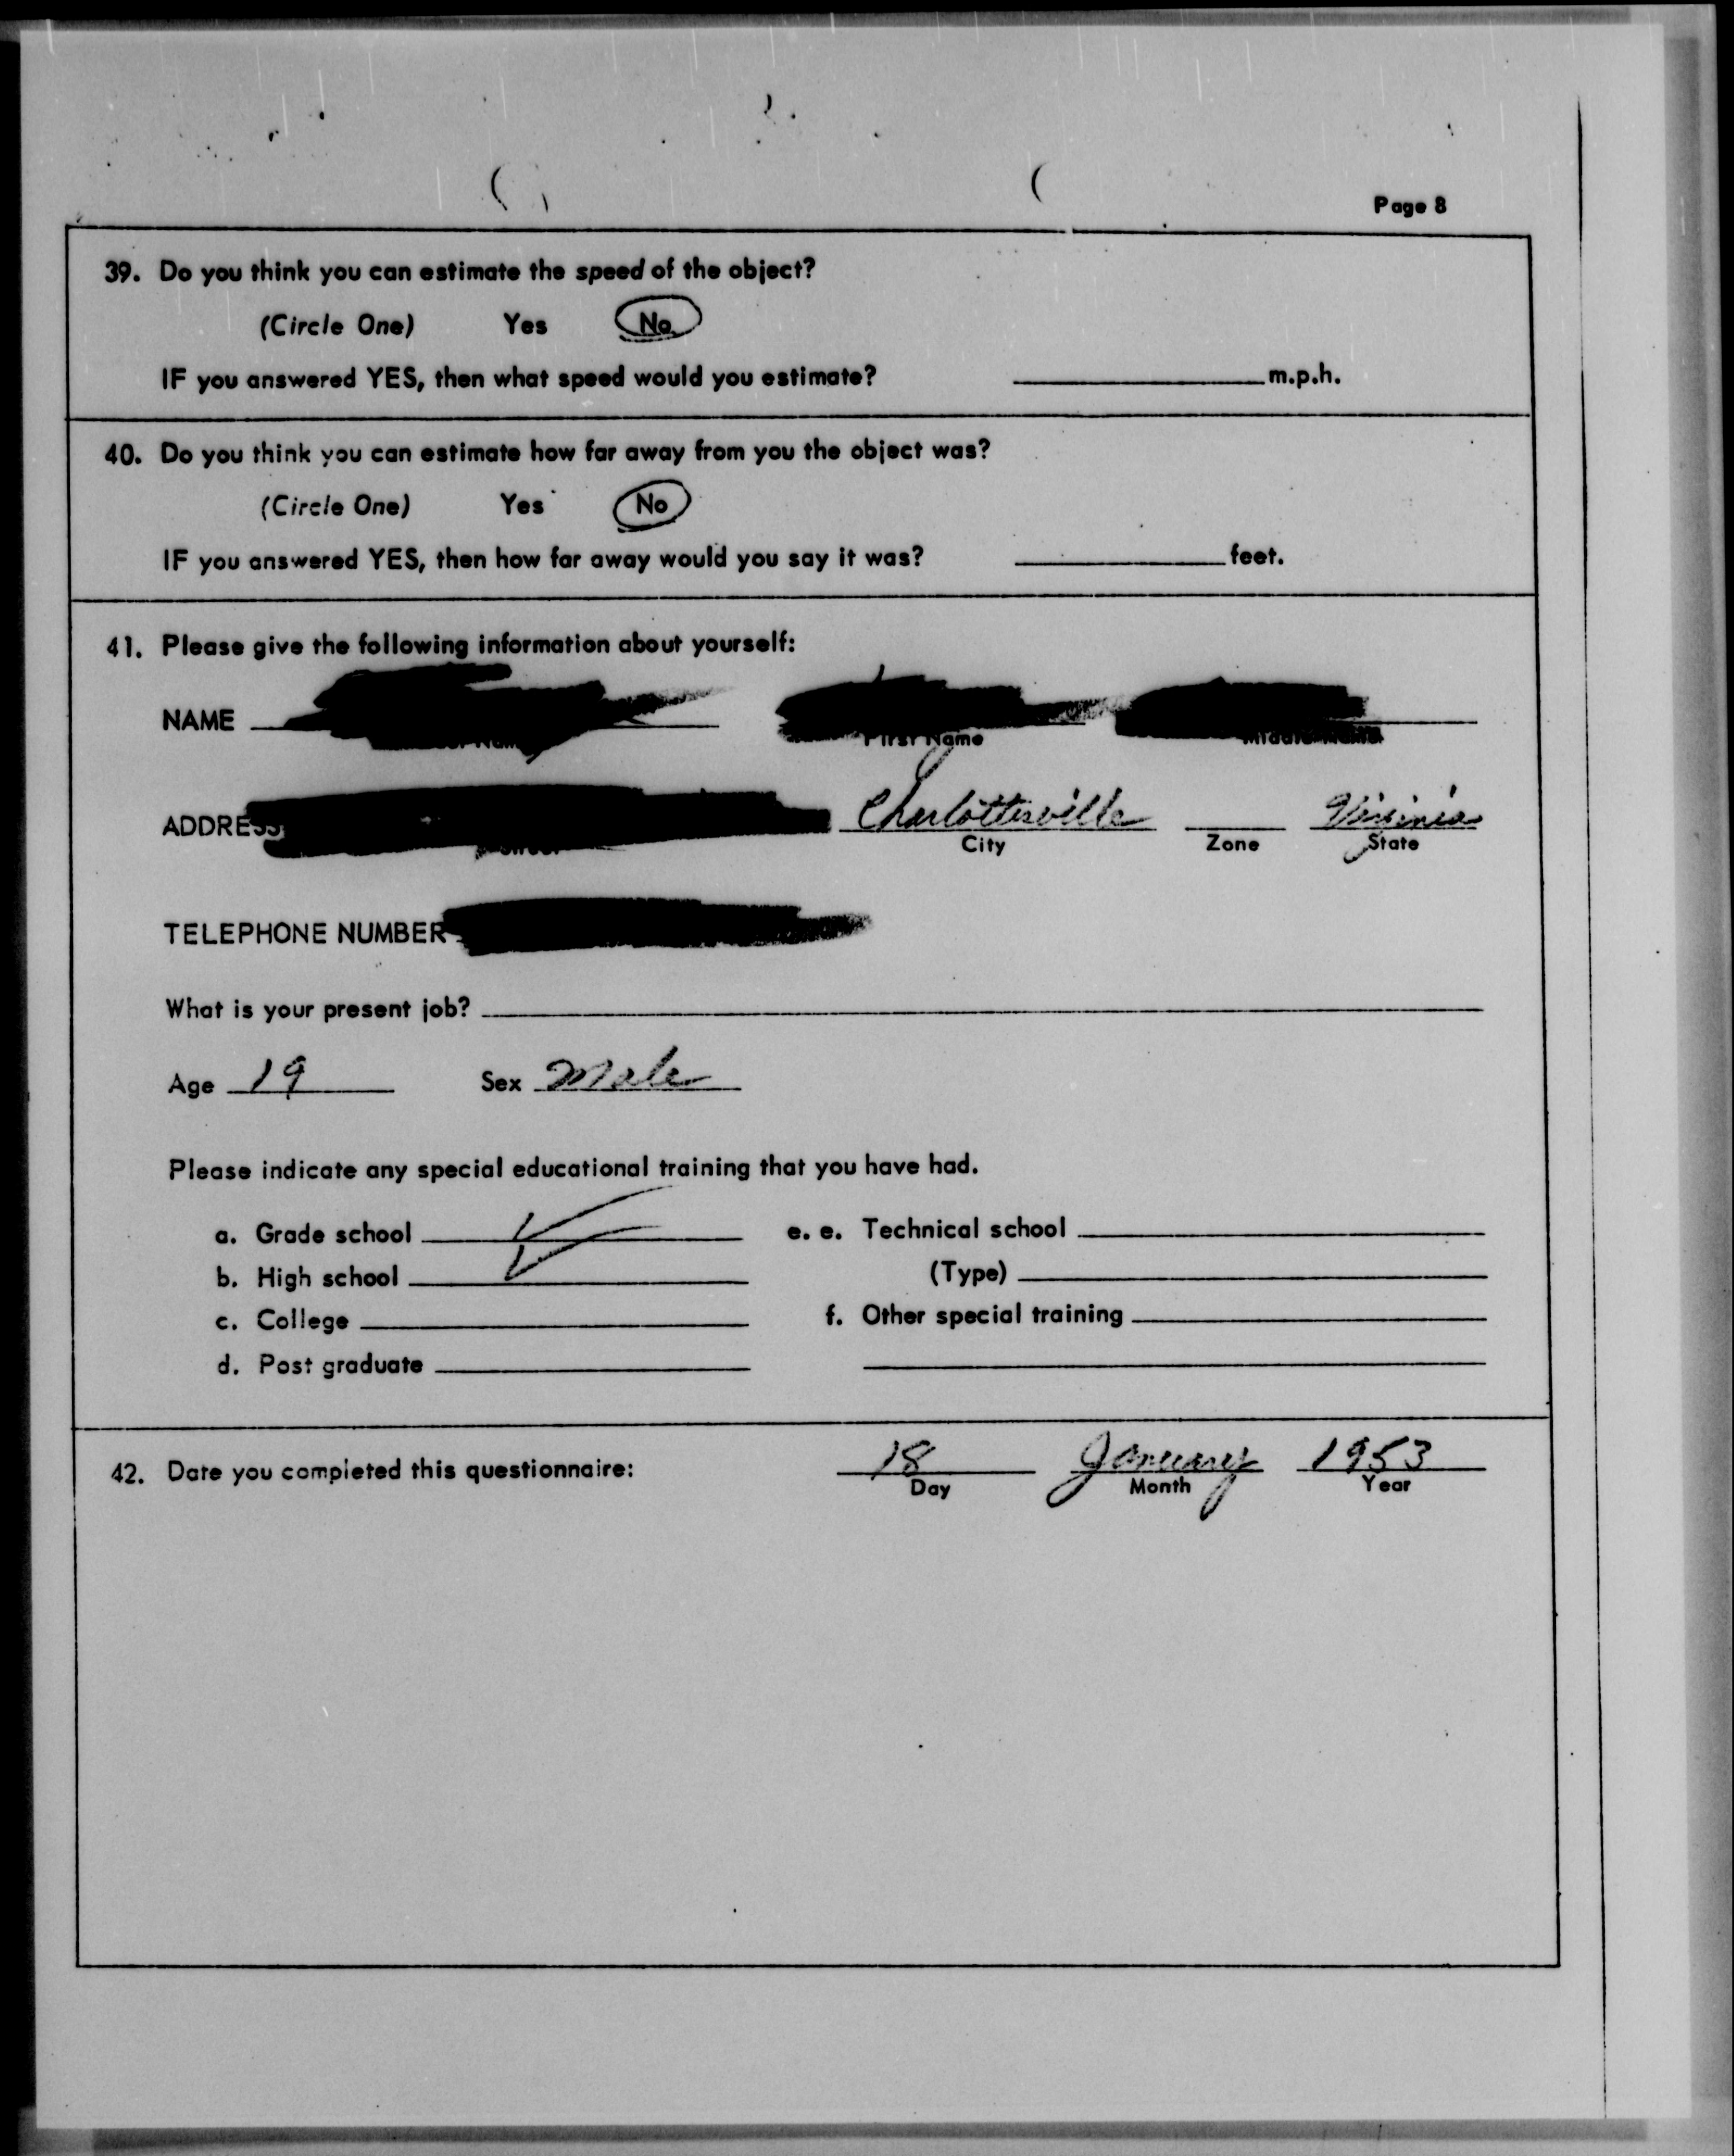 Page 8
39. Do you think you can estimate the speed of the object?
(Circle One) Yes No
IF you answered YES, then what speed would you estimate? m.p.h.
40. Do you think you can estimate how far away from you the object was?
(Circle One) Yes No
IF you answered YES, then how far away would you say it was? feet.
41. Please give the following information about yourself:
NAME
First Name Middle Name
ADDRESS Charlottesville Virginia
City Zone State
TELEPHONE NUMBER
What is your present job?
Age 19 Sex Male
Please indicate any special educational training that you have had.
a. Grade school e. e. Technical school
b. High school (Type)
c. College f. Other special training
d. Post graduate
42. Date you completed this questionnaire: 18 January 1953
Day Month Year